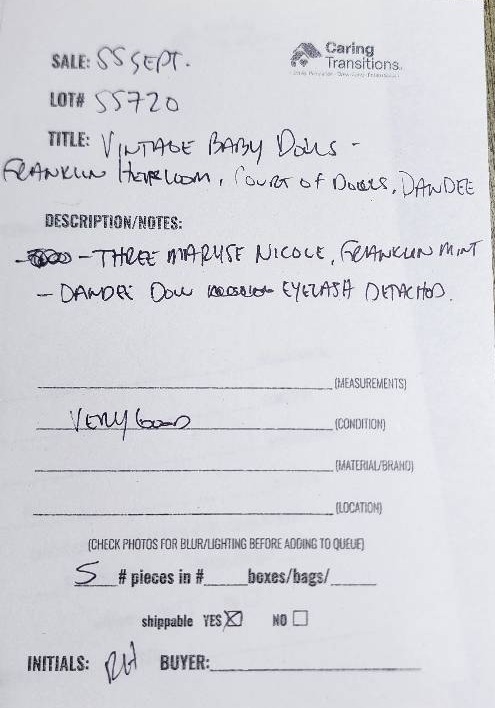 Caring
Transitions
SALE: SS SEPT.
LOT# SS720
TITLE: VINTAGE BABY DOLLS -
FRANKLIN HEIRLOOM, COURT OF DOLLS, DANDEE
DESCRIPTION/NOTES:
- THREE MARYSE NICOLE, FRANKLIN MINT
- DANDEE DOLL EYELASH DETACHED.
(MEASUREMENTS)
VERY GOOD (CONDITION)
(MATERIAL/BRAND)
(LOCATION)
(CHECK PHOTOS FOR BLUR/LIGHTING BEFORE ADDING TO QUEUE)
5 # pieces in #____boxes/bags/____
shippable YES☒ NO☐
INITIALS: RH BUYER: